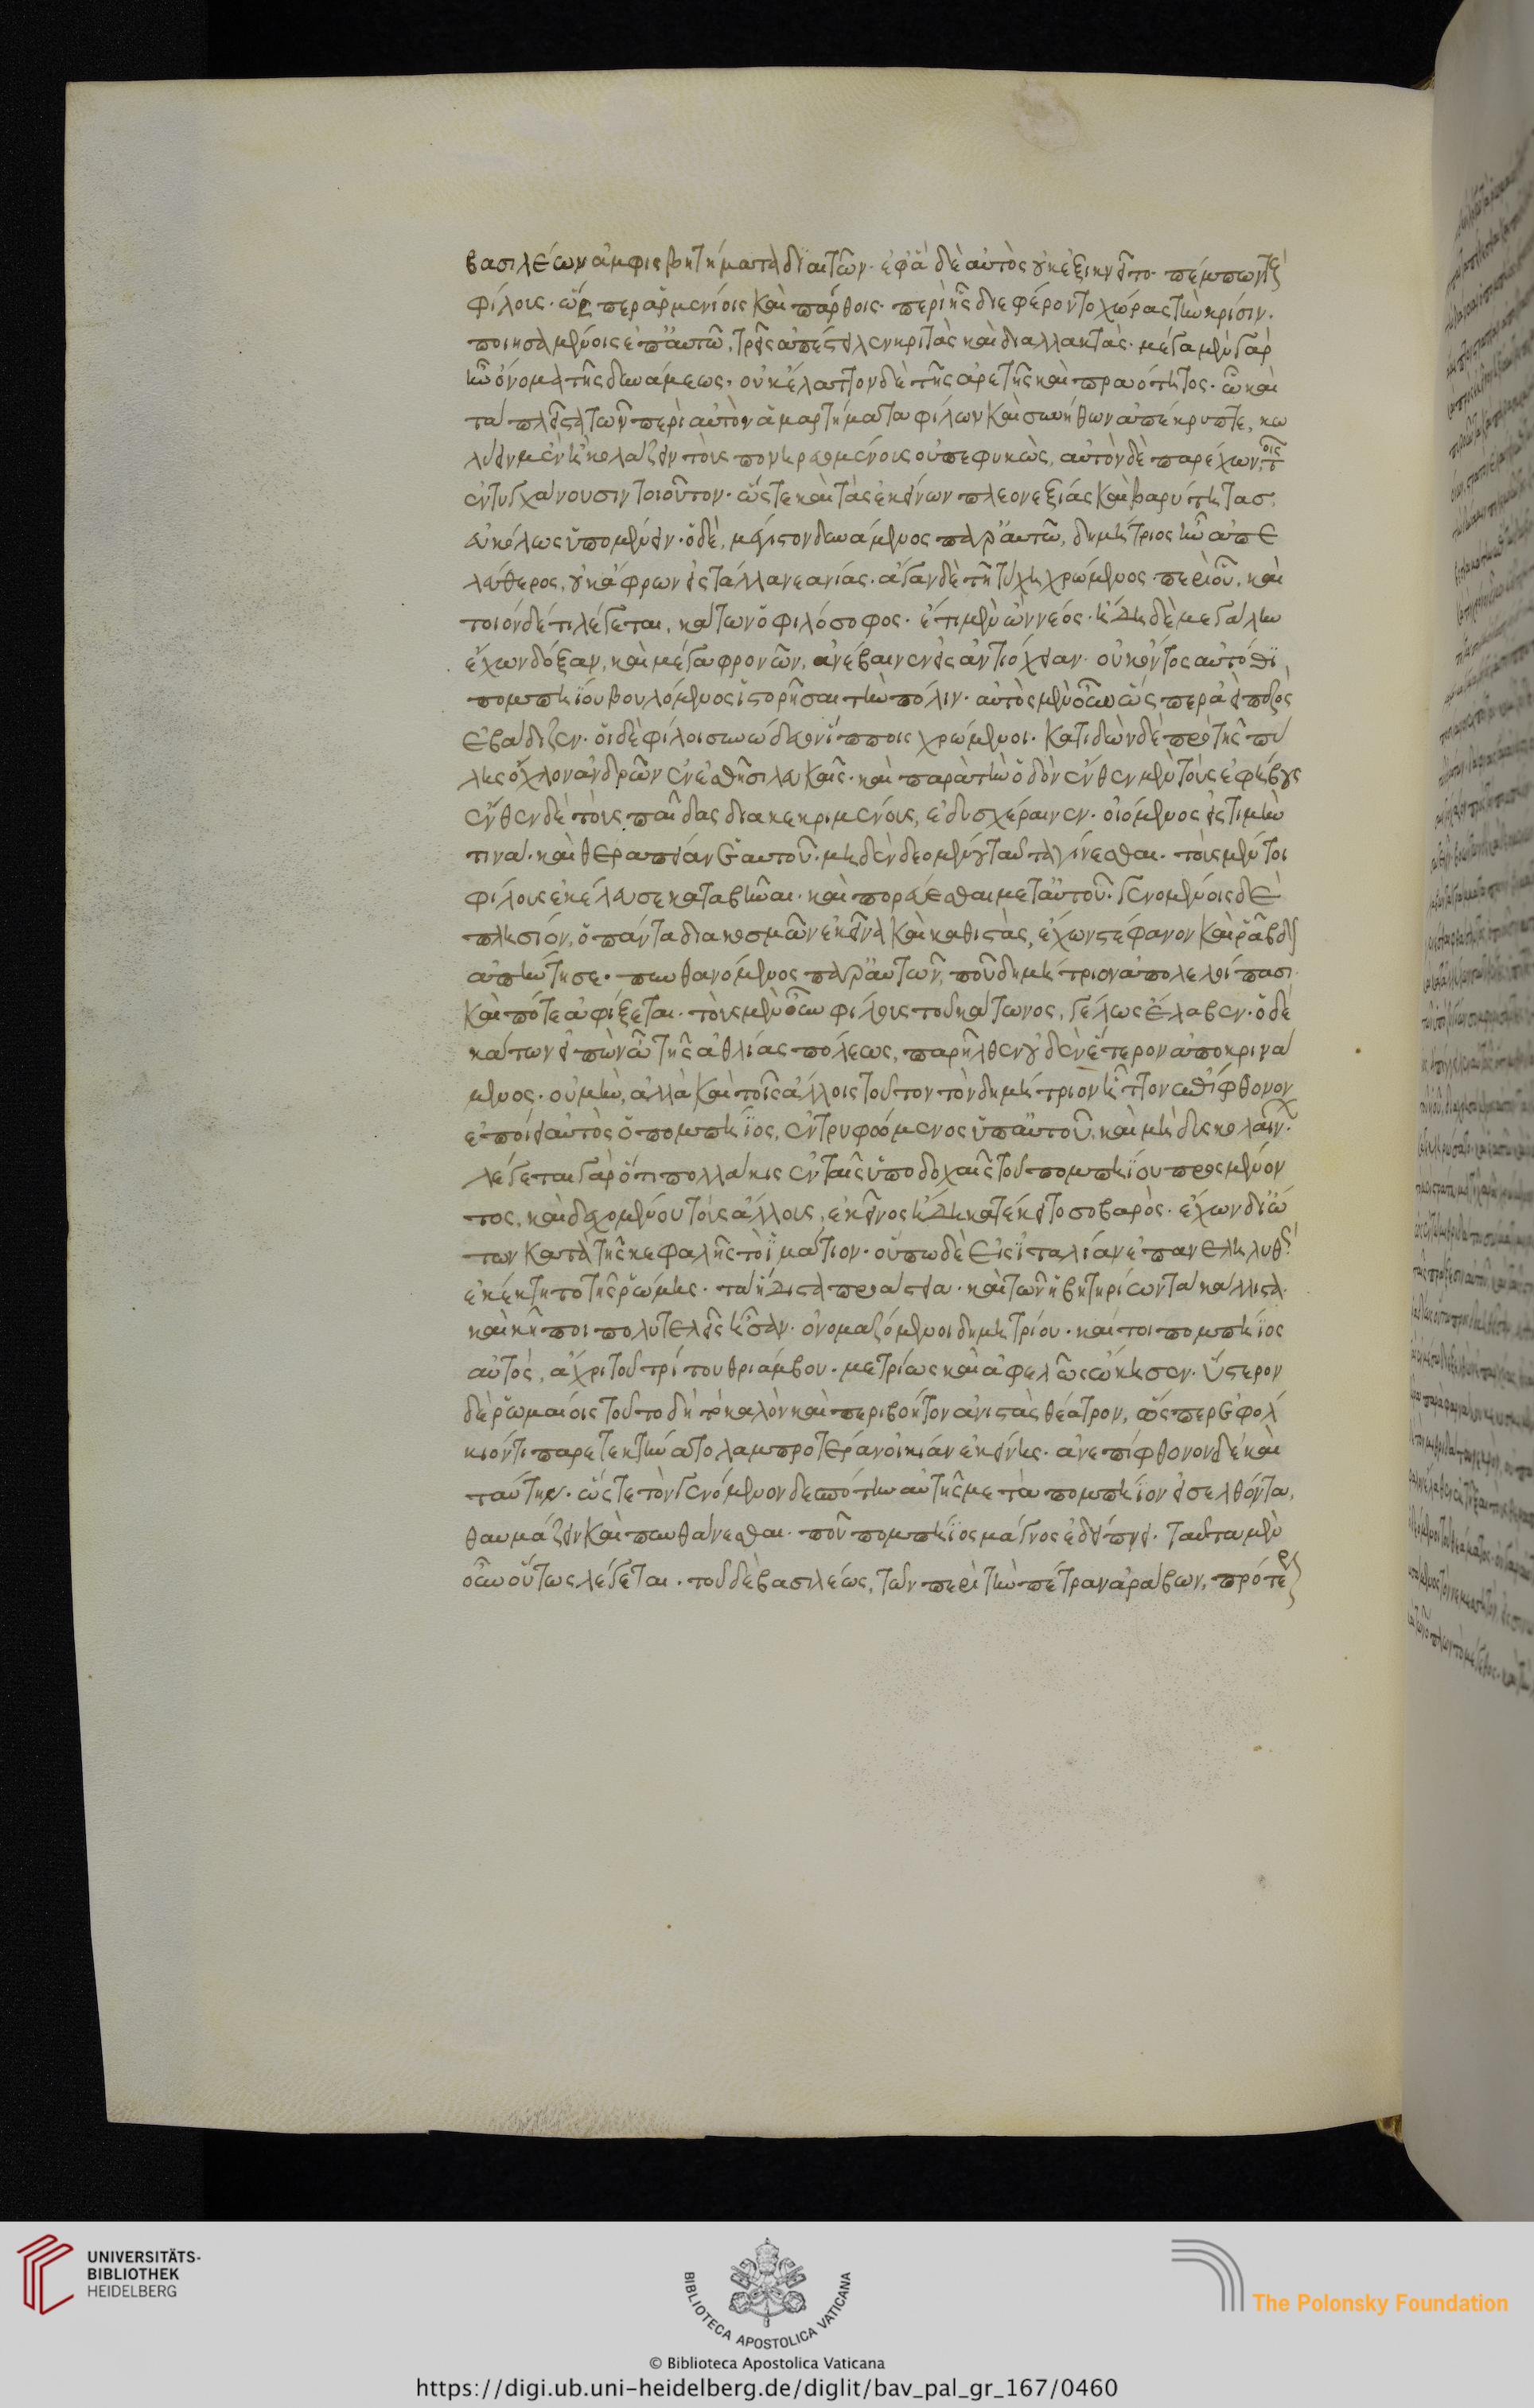 βασιλέων ἀμφισβητήματα διαιτῶν· ἐφ' ἃ δὲ αὐτὸς οὐκ ἐξικνεῖτο· πέμπων τοὺς
φίλους· ὥσπερ ἀρμενίοις καὶ πάρθοις· περὶ ἧς διεφέροντο χώρας τὴν κρίσιν·
ποιησαμένοις ἐπ' αὐτῶ, τρεῖς ἀπέστειλεν κριτὰς καὶ διαλλακτάς· μέγα μὲν γὰρ
ἦν ὄνομα τῆς δυνάμεως, οὐκ ἔλαττον δὲ τῆς ἀρετῆς καὶ πραότητος· ὧ καὶ
τὰ πλεῖστα τῶν περὶ αὐτὸν ἁμαρτήματα φίλων καὶ συνήθων ἀπέκρυπτε, κω
λύειν μὲν ἢ κολάζειν τοὺς πονηρευομένους οὐ πεφυκὼς, αὐτὸν δὲ παρέχων, τοῖς
ἐντυγχάνουσιν τοιοῦτον· ὥστε καὶ τὰς ἐκείνων πλεονεξίας καὶ βαρύτητας,
εὐκόλως ὑπομένειν· ὁ δὲ, μέγιστον δυνάμενος παρ' αὐτῶ, δημήτριος ἦν ἀπε
λεύθερος, οὐκ ἄφρων εἰς τἄλλα νεανίας· ἄγαν δὲ τῆ τύχη χρώμενος· περὶ οὗ, καὶ
τοιόνδέ τι λέγεται, κάτων ὁ φιλόσοφος· ἔτι μὲν ὢν νέος· ἤδη δὲ μεγάλην
ἔχων δόξαν, καὶ μέγα φρονῶν, ἀνέβαινεν εἰς ἀντιόχειαν· οὐκ ὄντος αὐτόθι
πομπηΐου βουλόμενος ἱστορῆσαι τὴν πόλιν· αὐτὸς μὲν οὖν ὥσπερ ἀεὶ πεζὸς
ἐβάδιζεν· οἱ δὲ φίλοι συνώδευον ἵπποις χρώμενοι· κατιδὼν δὲ πρὸ τῆς πύ
λης ὄχλον ἀνδρῶν ἐν ἐσθῆσι λευκαῖς· καὶ παρὰ τὴν ὁδὸν ἔνθεν μὲν τοὺς ἐφήβους
ἔνθεν δὲ τοὺς παῖδας διακεκριμένους, ἐδυσχέραινεν· οἰόμενος εἰς τιμὴν
τινα· καὶ θεραπείαν ἑαυτοῦ· μηδὲν δεομένου ταῦτα γίνεσθαι· τοὺς μέντοι
φίλους ἐκέλευσε καταβῆναι· καὶ πορεύεσθαι μετ' αὐτοῦ· γενομένοις δὲ
πλησίον, ὁ πάντα διακοσμῶν ἐκεῖνα καὶ καθιστὰς, ἔχων στέφανον καὶ ῥάβδον
ἀπήντησε· πυνθανόμενος παρ' αὐτῶν, ποῦ δημήτριον ἀπολελοίπασι·
καὶ πότε ἀφίξεται· τοὺς μὲν οὖν φίλους τοῦ κάτωνος, γέλως ἔλαβεν· ὁ δὲ
κάτων εἰπὼν ὢ τῆς ἀθλίας πόλεως, παρῆλθεν οὐδὲν ἕτερον ἀποκρινά
μενος· οὐ μὴν, ἀλλὰ καὶ τοῖς ἄλλοις τοῦτον τὸν δημήτριον ἧττον ἐπίφθονον
ἐποίει αὐτὸς ὁ πομπήϊος, ἐντρυφώμενος ὑπ' αὐτοῦ, καὶ μὴ δυσκολαίνων·
λέγεται γὰρ ὅτι πολλάκις ἐν ταῖς ὑποδοχαῖς τοῦ πομπηΐου προσμένον
τος, καὶ δεχομένου τοὺς ἄλλους, ἐκεῖνος ἤδη κατέκειτο σοβαρὸς· ἔχων δι' ὤ
των κατὰ τῆς κεφαλῆς τὸ ἱμάτιον· οὔπω δὲ εἰς ἰταλίαν ἐπανεληλυθὼς
ἐκέκτητο τῆς ῥώμης· τὰ ἥδιστα προάστεια· καὶ τῶν ἡβητηρίων τὰ κάλλιστα·
καὶ κῆποι πολυτελεῖς ἦσαν· ὀνομαζόμενοι δημητρίου· καίτοι πομπήϊος
αὐτός, ἄχρι τοῦ τρίτου θριάμβου· μετρίως καὶ ἀφελῶς ὤκησεν· ὕστερον
δὲ ῥωμαίοις τοῦτο δὴ τὸ καλὸν καὶ περιβόητον ἀνιστὰς θέατρον, ὥσπερ ἐφόλ
κιόν τι παρετεκτήνατο λαμπροτέραν οἰκίαν ἐκείνης· ἀνεπίφθονον δὲ καὶ
ταύτην· ὥστε τὸν γενόμενον δεσπότην αὐτῆς μετὰ πομπήϊον εἰσελθόντα,
θαυμάζειν καὶ πυνθάνεσθαι· ποῦ πομπήϊος μάγνος ἐδείπνει· ταῦτα μὲν
οὖν οὕτως λέγεται· τοῦ δὲ βασιλέως, τῶν περὶ τὴν πέτραν ἀράβων, πρότερον
UNIVERSITÄTS-
BIBLIOTHEK
HEIDELBERG
BIBLIOTECA APOSTOLICA VATICANA
The Polonsky Foundation
© Biblioteca Apostolica Vaticana
https://digi.ub.uni-heidelberg.de/diglit/bav_pal_gr_167/0460